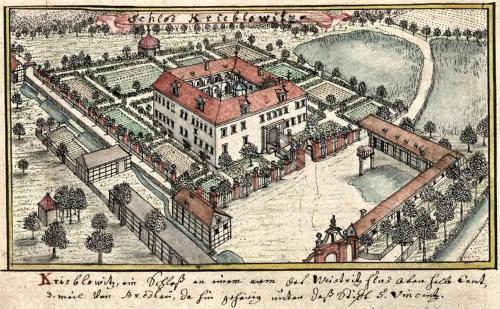 Schloß Krieblowitz
Krieblowitz, ein Schloß an einem arm des Weistritz flus oben halb Cant,
3. meil von Breslau, da hin gehörig unter daß Stifft S. Vincent.